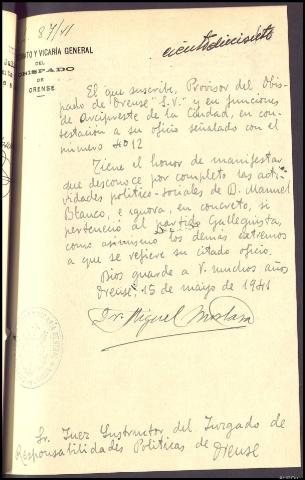 87/41
cientodiecisiete
VICARÍA GENERAL
DEL
OBISPADO
DE
ORENSE
El que suscribe, Provisor del Obis-
pado de Orense "S.V." y en funciones
de Arcipreste de la Ciudad, en con-
testación a su oficio señalado con el
número 4012
Tiene el honor de manifestar
que desconoce por completo las acti-
vidades político-sociales de D. Manuel
Blanco, e ignora, en concreto, si
perteneció al partido Galleguista
como asimismo los demás extremos
a que se refiere su citado oficio.
Dios guarde a V. muchos años
Orense, 15 de mayo de 1941
Dr. Miguel
Sr. Juez Instructor del Juzgado de
Responsabilidades Políticas de Orense